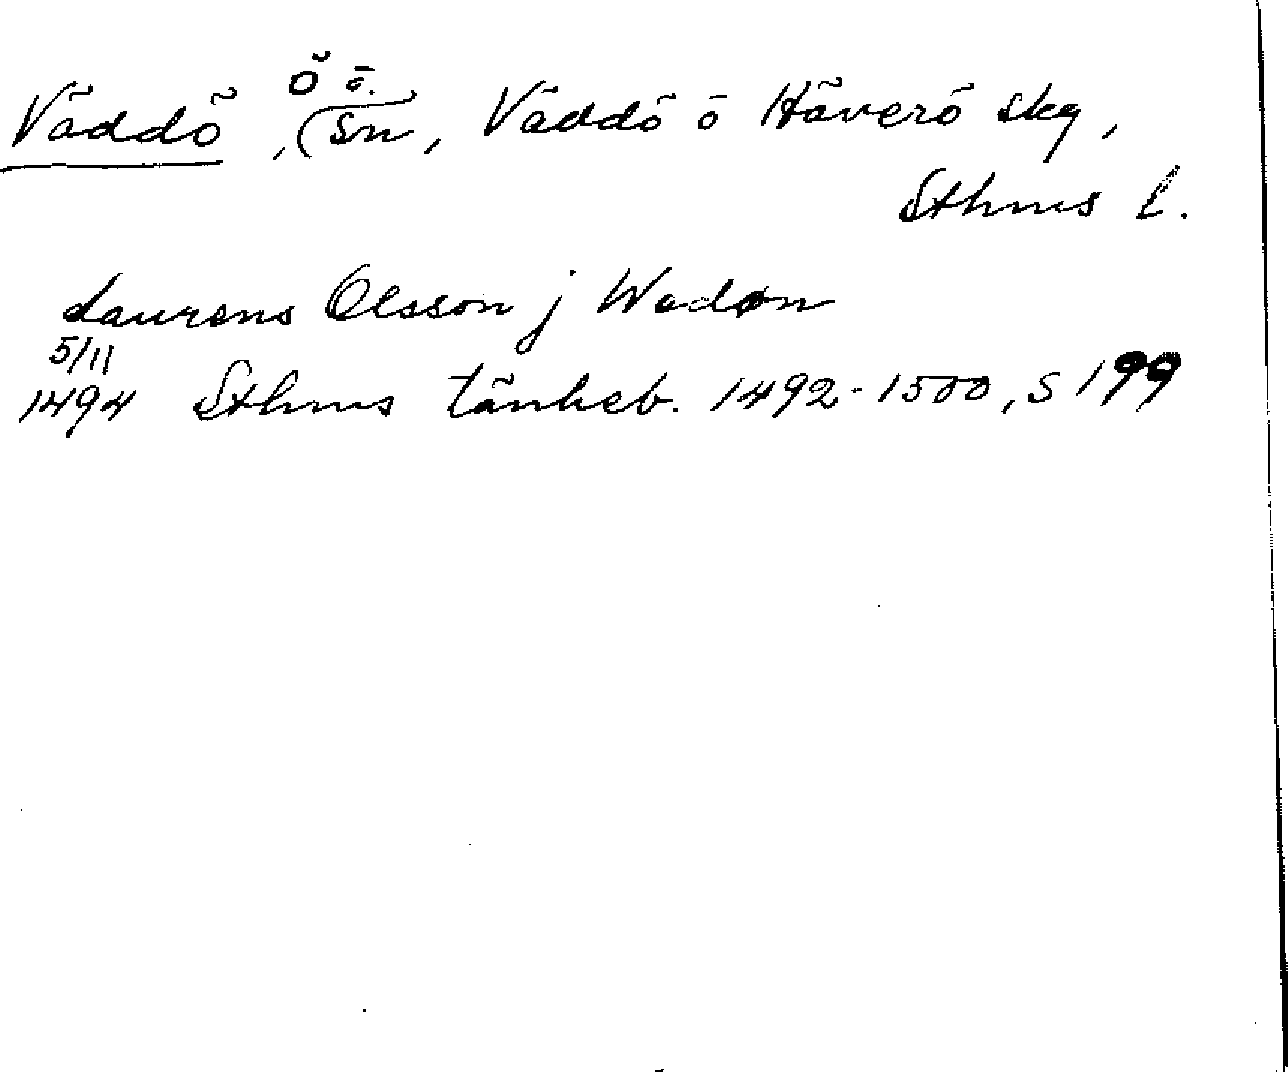 Ö ö.
Väddö, (sn, Väddö o Häverö skg,
Sthms l.
Laurens Olsson j Wadøn
5/11
1494 Sthms tänkeb. 1492-1500, s 199